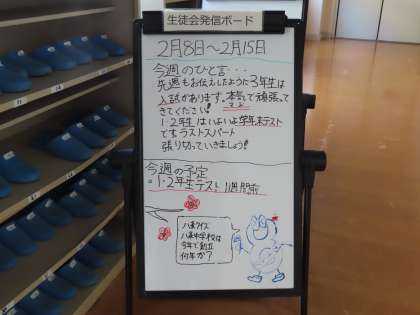 生徒会発信ボード
2月8日～2月15日
今週のひと言…
先週もお伝えしたように3年生は
入試があります。本気で頑張って
きてください!
1・2年生はいよいよ学年末テスト
ですラストスパート
張り切っていきましょう!
今週の予定
1・2年生テスト1週間前
八東クイズ
八東中学校は
今年で創立
何年か?